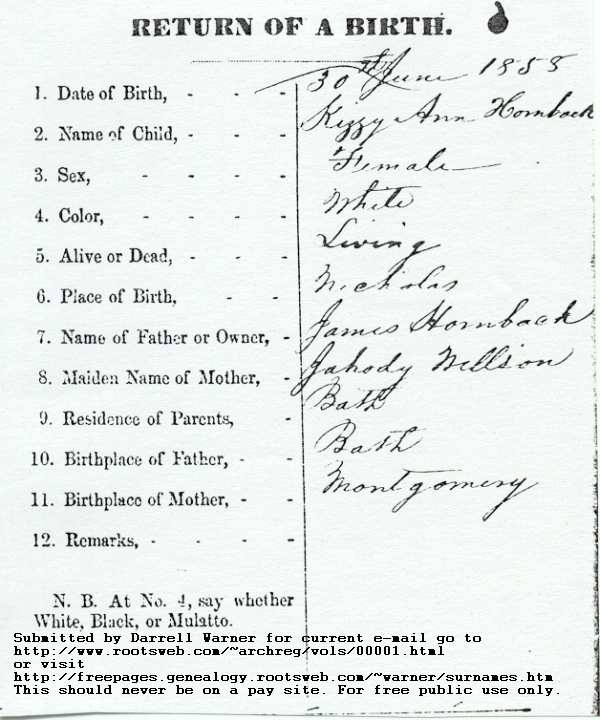 RETURN OF A BIRTH.
1. Date of Birth, - - - 30th June 1858
2. Name of Child, - - - Kizzy Ann Hornback
3. Sex, - - - - Female
4. Color, - - - - White
5. Alive or Dead, - - - Living
6. Place of Birth, - - Nicholas
7. Name of Father or Owner, - James Hornback
8. Maiden Name of Mother, - Jahody Willson
9. Residence of Parents, - Bath
10. Birthplace of Father, - - Bath
11. Birthplace of Mother, - - Montgomery
12. Remarks, - - - -
N. B. At No. 4, say whether
White, Black, or Mulatto.
Submitted by Darrell Warner for current e-mail go to
http://www.rootsweb.com/~archreg/vols/00001.html
or visit
http://freepages.genealogy.rootsweb.com/~warner/surnames.htm
This should never be on a pay site. For free public use only.